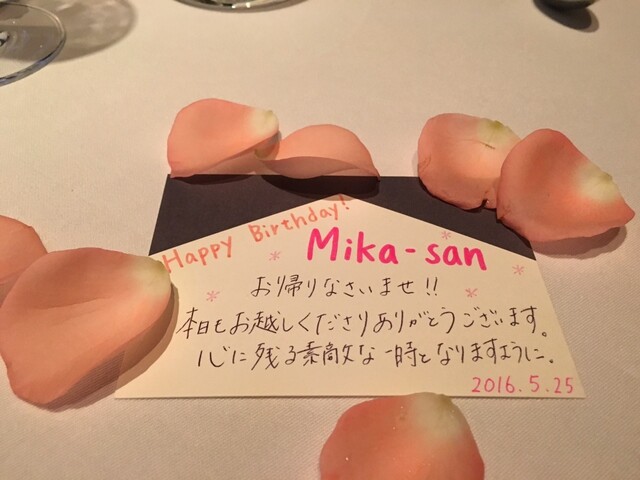 Happy Birthday!
Mika-san
お帰りなさいませ!!
本日もお越しくださりありがとうございます。
心に残る素敵な一時となりますように。
2016.5.25